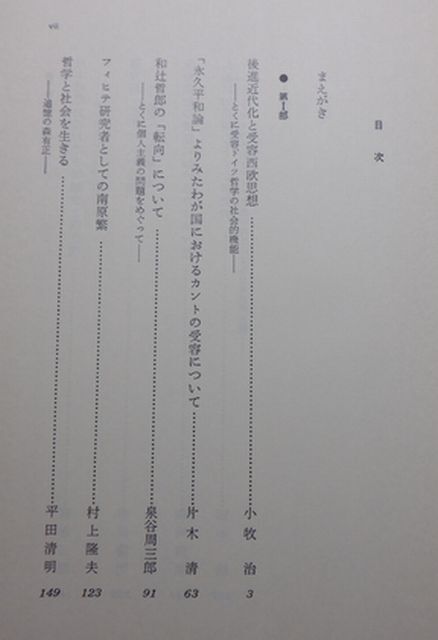 目次
まえがき
● 第Ⅰ部
後進近代化と受容西欧思想………小牧治 3
――とくに受容ドイツ哲学の社会的機能――
「永久平和論」よりみたわが国におけるカントの受容について………片木清 63
和辻哲郎の「転向」について………泉谷周三郎 91
――とくに個人主義の問題をめぐって――
フィヒテ研究者としての南原繁………村上隆夫 123
哲学と社会を生きる………平田清明 149
――追憶の森有正――
vii